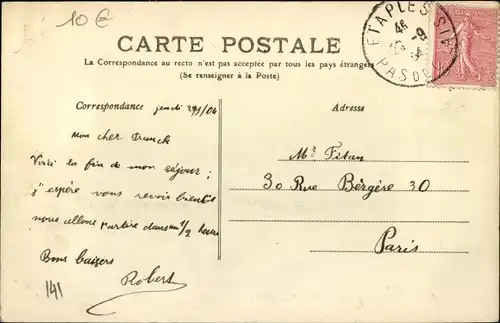 10€
CARTE POSTALE
La Correspondance au recto n'est pas acceptée par tous les pays étrangers
(Se renseigner à la Poste)
ETAPLES
PAS DE
Correspondance jeudi
Adresse
Mon cher Franck
Voici la fin de mon séjour;
j'espère vous revoir bientôt
nous allons partire dans 1/2 heure
Bons baisers
Robert
141
Mr. Fitan
30 Rue Bergère 30
Paris